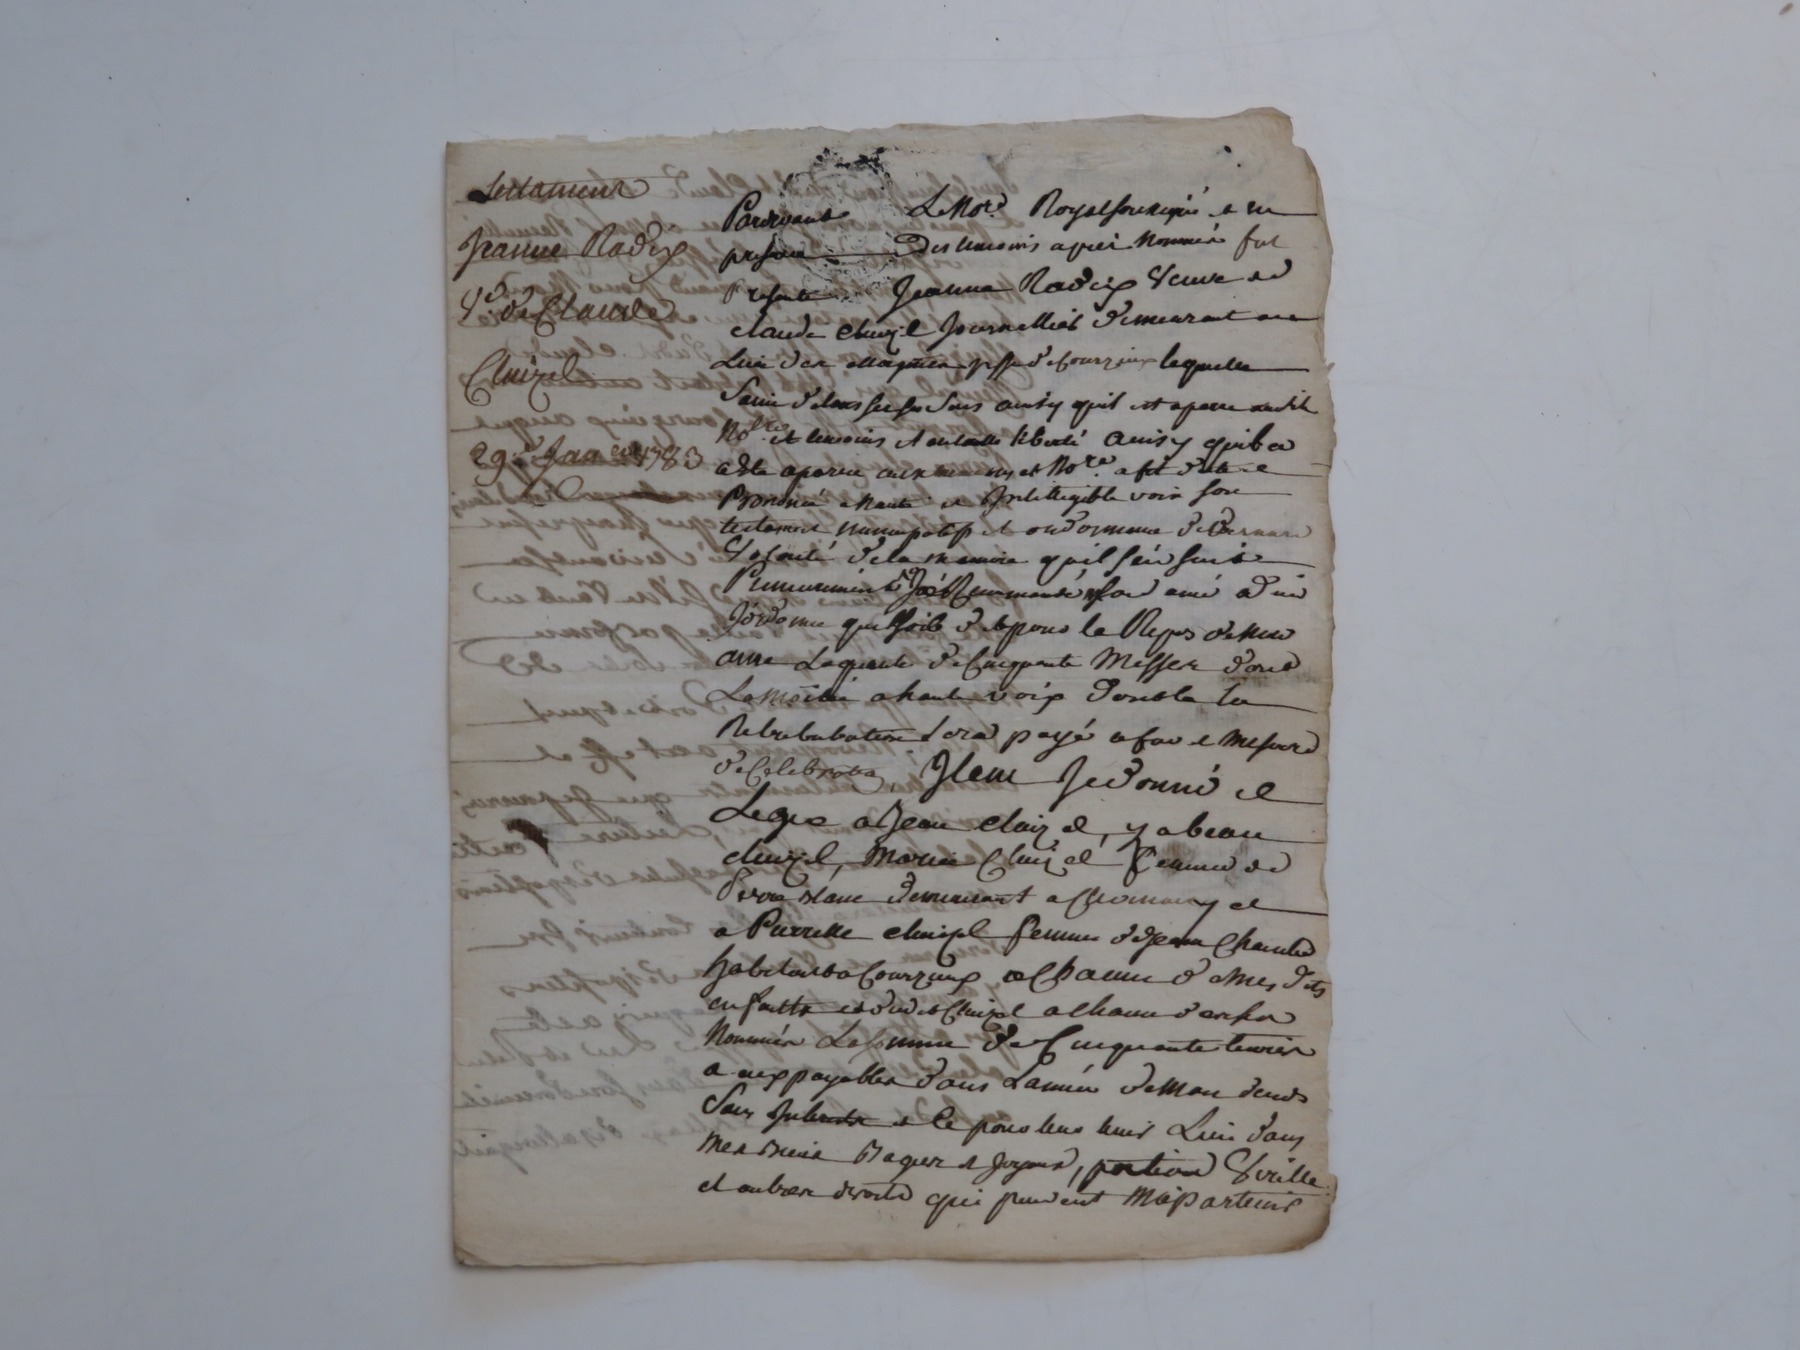 testament
Jeanne Radix
Vve de Claude
Cluizel
29e Janer 1783
Pardevant Le Nore Royal soussigné et en
presence des temoins apres Nommés fut
Presente Jeanne Radix Veuve de
claude cluizel Journallier demeurant au
Lieu des psse de Courzieux laquelle
Saine de tous ses sens ainsy quil est aparu audit
Nore et temoins et en toutte liberté ainsy quil a
este aparu aux et Nore a fit
Prononcé a haute et Intelligible voix son
testament nuncupatif et ordonnance de derniere
Volonté de la maniere quil sen suit
Premierement Jay Recommandé mon ame a dieu
Jordonne quil soit dit pour le Repos de mon
ame Laquantité de Cinquante Messes dont
La moitié a haute voix dont la
Retribution sera payé a fur et Mesure
de Celebration, Item Je donne et
Legue a Jean cluizel, y abeau
cluizel, Marie Cluizel femme de
Pierre blanc demeurant a et
a Pierrette cluizel femme de Jean
habitants a Courzieux a Chacun de mes dits
enfants et dudit Cluizel a chacun
Nommés La somme de Cinquante livres
a eux payables dans Lannée de Mon deces
Sans Interets et ce pour tous Lieu dans
mes Biens et , portion Virille
et autres droits qui peuvent Mapartenir